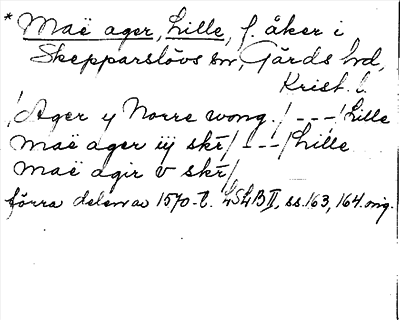 * Maë ager, Lille, f. åker i
Skepparslövs sn, Gärds hd,
Krist. l.
/Ager y Norre wong./ - - - /Lille
maë ager iij skr/ - - - /Lille
maë agir v skr/
förra delen av 1570-t. LSLB II, ss. 163, 164. orig.